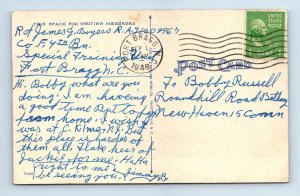 THIS SPACE FOR WRITING MESSAGES
Rct James G. Boyers R.A.
Co F. 4th Bn.
Special Training
Fort Bragg N.C.
Hi. Bobby what are you
doing? I am having
a good time But today
from home. I wish
was at C. Kilmer N.J. But
this place is harder of
them all. Take care of
Jackie for me. HaHa
right to me
be seeing you. Jimmy B
FORT BRAGG
1948
POST CARD
To Bobby Russell
Roundhill Road Bethany
New Haven 15 Conn